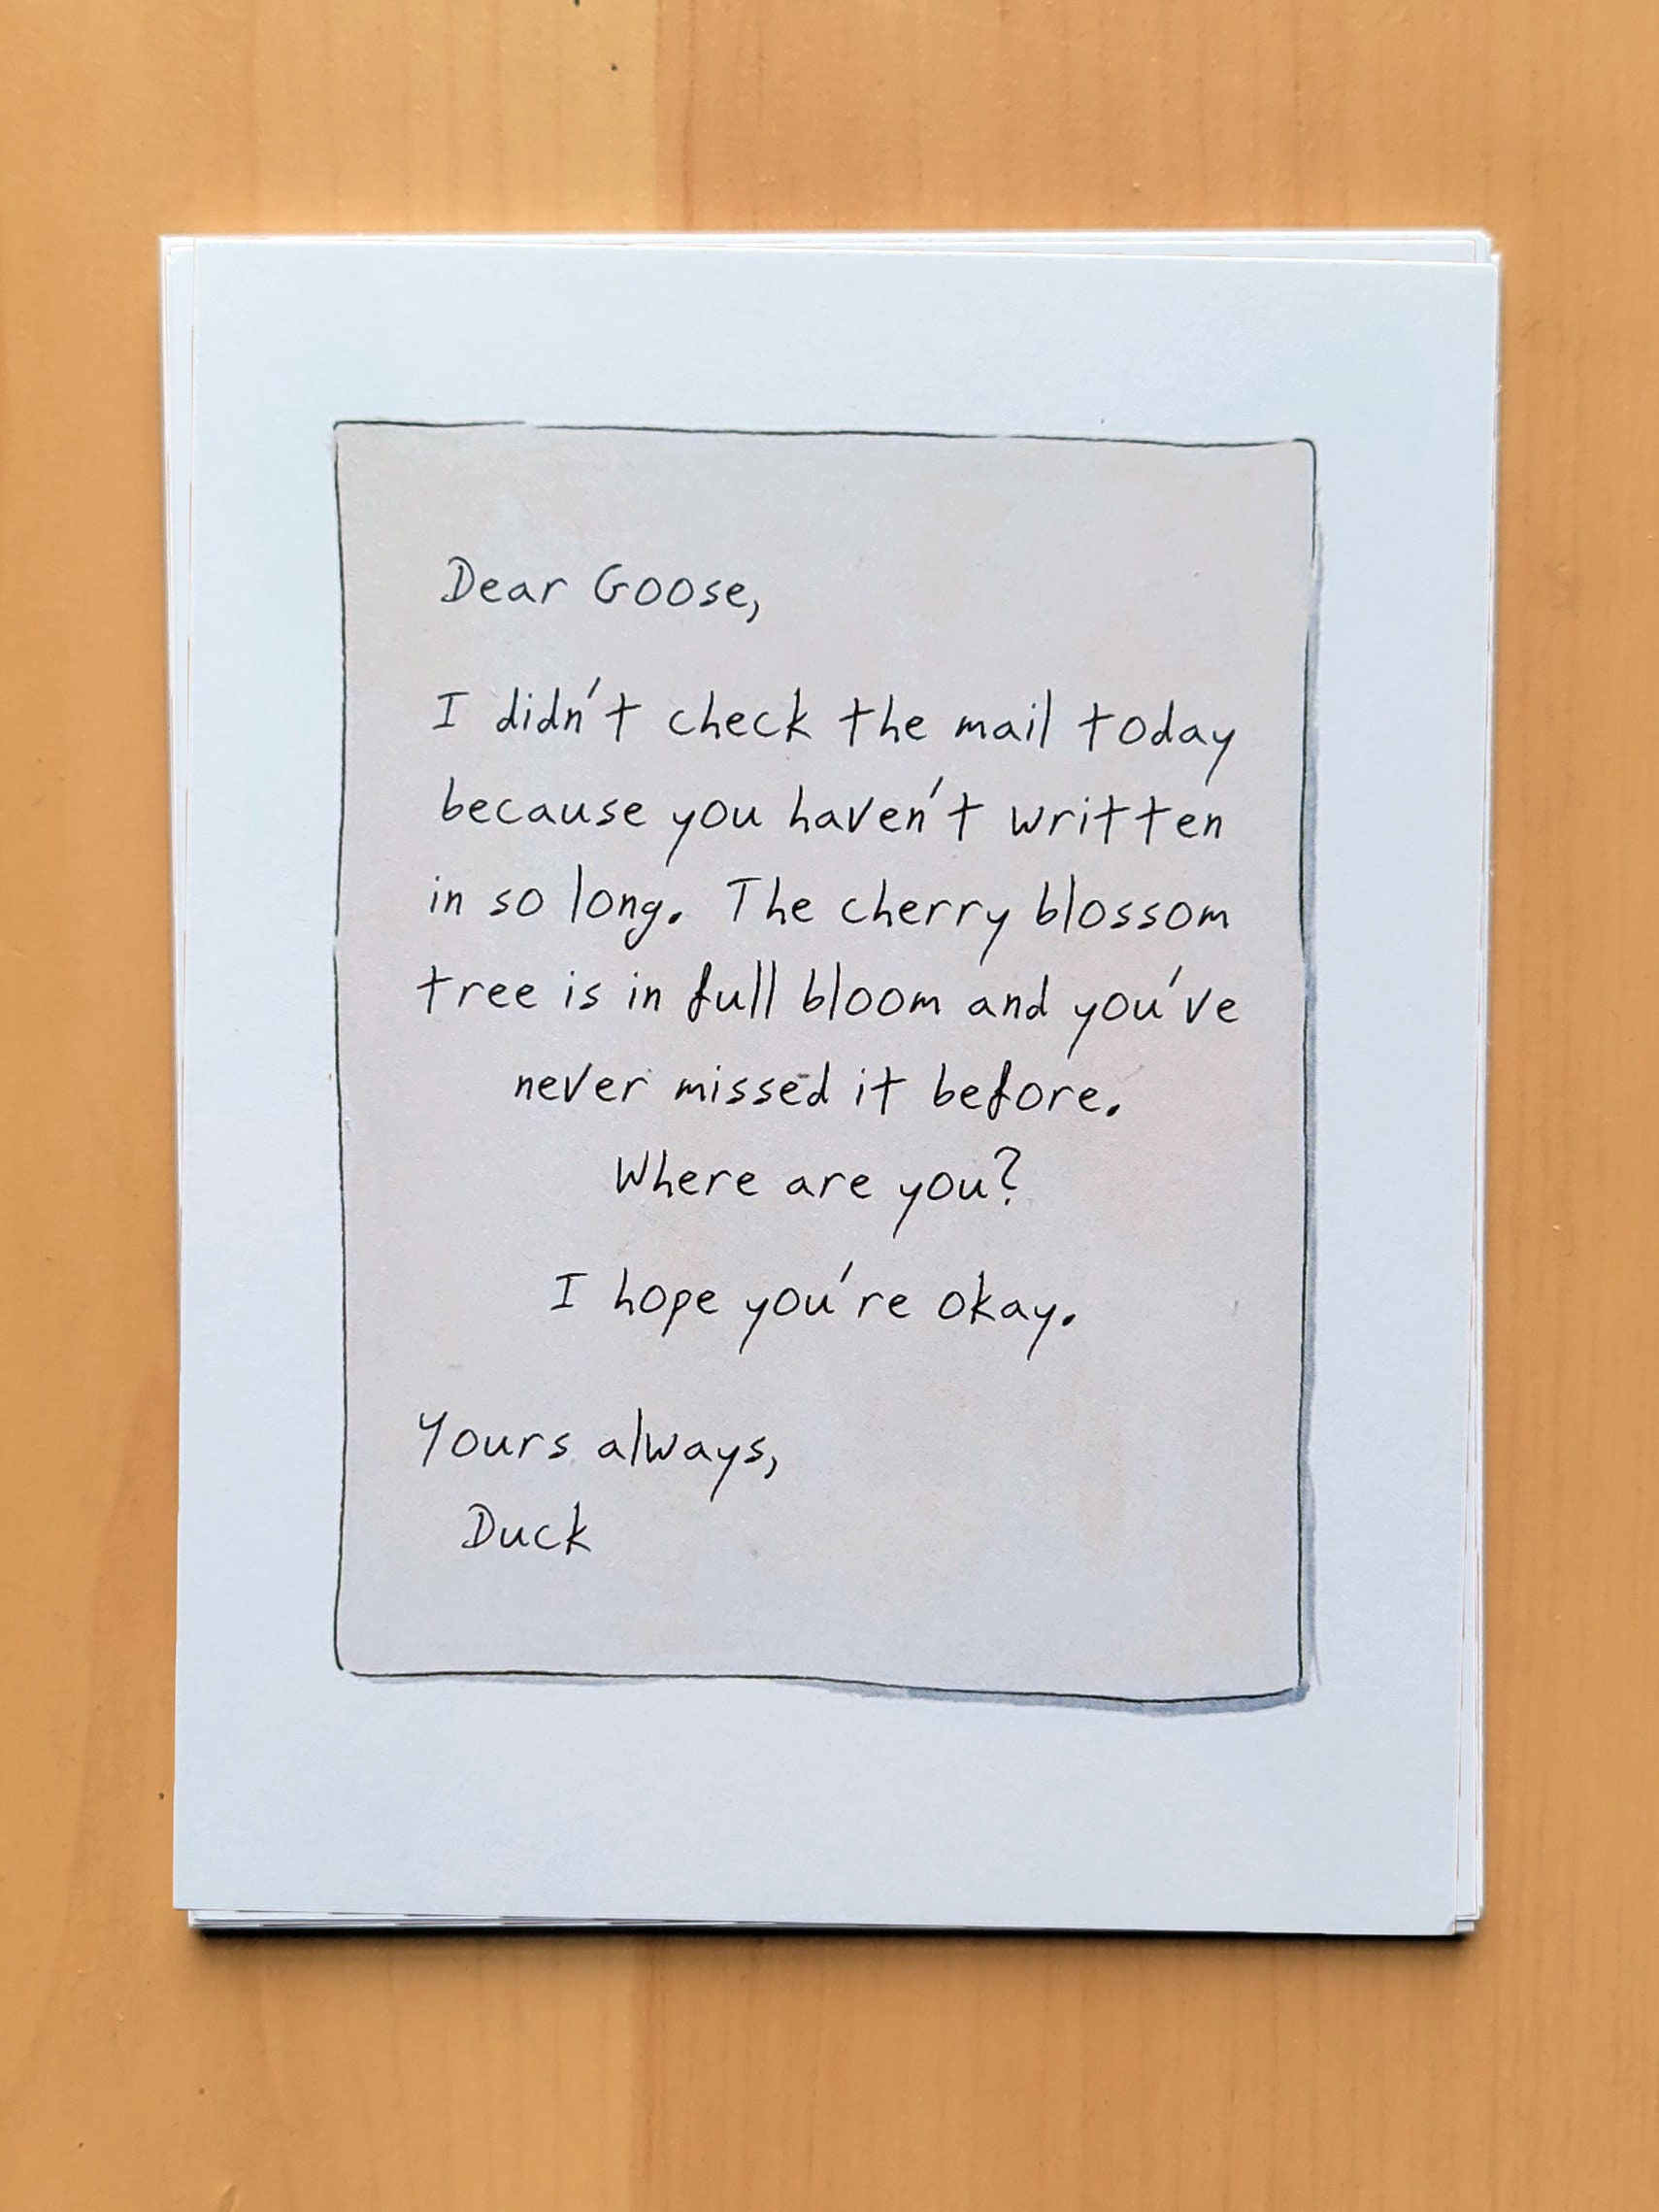 Dear Goose,
I didn't check the mail today
because you haven't written
in so long. The cherry blossom
tree is in full bloom and you've
never missed it before.
Where are you?
I hope you're okay.
Yours always,
Duck